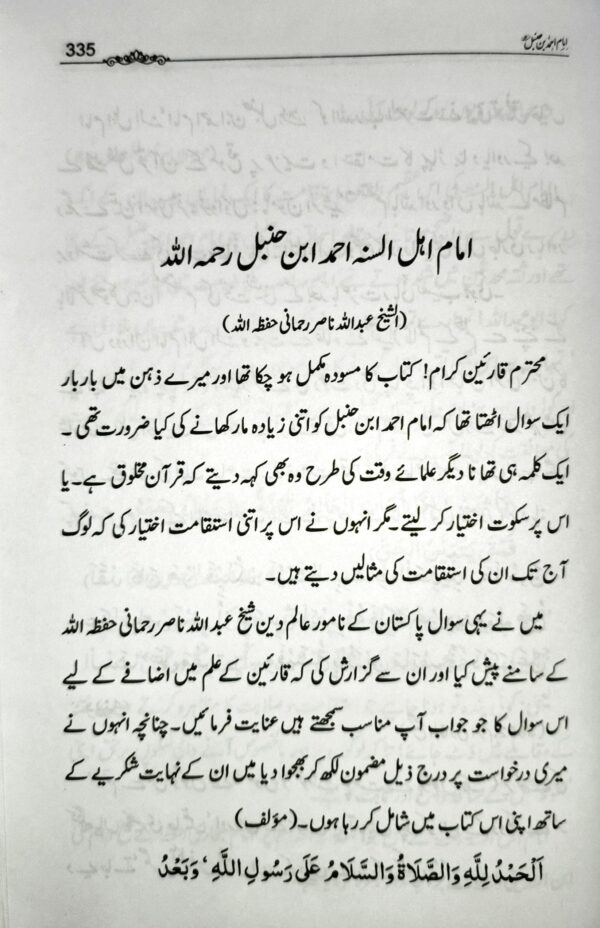 امام احمد بن حنبل
335
امام اہل السنہ احمد ابن حنبل رحمہ اللہ
(الشیخ عبداللہ ناصر رحمانی حفظہ اللہ)
محترم قارئین کرام! کتاب کا مسودہ مکمل ہو چکا تھا اور میرے ذہن میں بار بار
ایک سوال اٹھتا تھا کہ امام احمد ابن حنبل کو اتنی زیادہ مار کھانے کی کیا ضرورت تھی۔
ایک کلمہ ہی تھا نا دیگر علمائے وقت کی طرح وہ بھی کہہ دیتے کہ قرآن مخلوق ہے۔ یا
اس پر سکوت اختیار کر لیتے۔ مگر انہوں نے اس پر اتنی استقامت اختیار کی کہ لوگ
آج تک ان کی استقامت کی مثالیں دیتے ہیں۔
میں نے یہی سوال پاکستان کے نامور عالم دین شیخ عبد اللہ ناصر رحمانی حفظہ اللہ
کے سامنے پیش کیا اور ان سے گزارش کی کہ قارئین کے علم میں اضافے کے لیے
اس سوال کا جو جواب آپ مناسب سمجھتے ہیں عنایت فرمائیں۔ چنانچہ انہوں نے
میری درخواست پر درج ذیل مضمون لکھ کر بھجوا دیا میں ان کے نہایت شکریے کے
ساتھ اپنی اس کتاب میں شامل کر رہا ہوں۔ (مؤلف)
اَلْحَمْدُ لِلَّهِ وَالصَّلَاةُ وَالسَّلَامُ عَلَى رَسُولِ اللَّهِ ، وَبَعْدُ